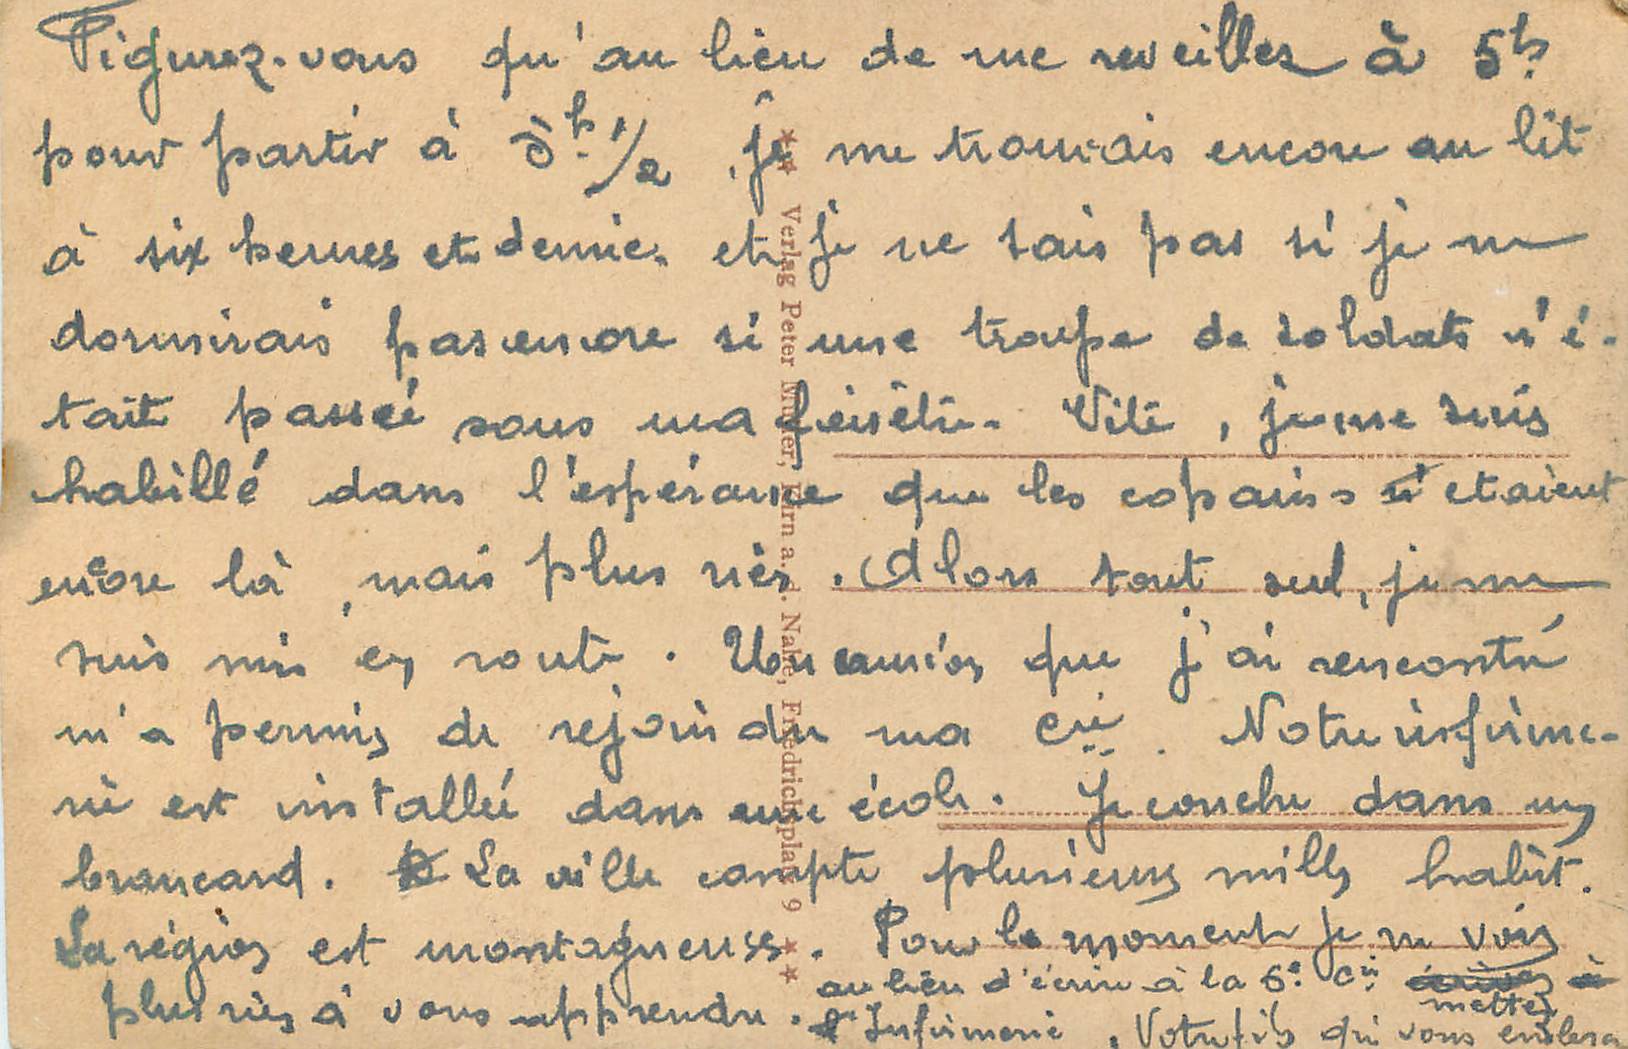 Figurez-vous qu'au lieu de me reveiller à 5h
pour partir à 5h 1/2 je me trouvais encore au lit
à six heures et demie. et je ne sais pas si je ne
dormirais pas encore si une troupe de soldats n'é-
tait passée sous ma fenêtre. Vite, je me suis
habillé dans l'espérance que les copains n'etaient
encore là, mais plus rien. Alors tout seul, je me
suis mis en route. Un camion que j'ai rencontré
m'a permis de rejoindre ma Cie. Notre infirme-
rie est installée dans une école. Je couche dans un
brancard. La ville compte plusieurs mille habit.
La région est montagneuse. Pour le moment je ne vois
plus rien à vous apprendre.
au lieu d'écrire à la 6e Cie
mettez
l'Infirmerie, Votre fils qui vous
Verlag Peter Müller, Kirn a. d. Nahe, Friedrichsplatz 9